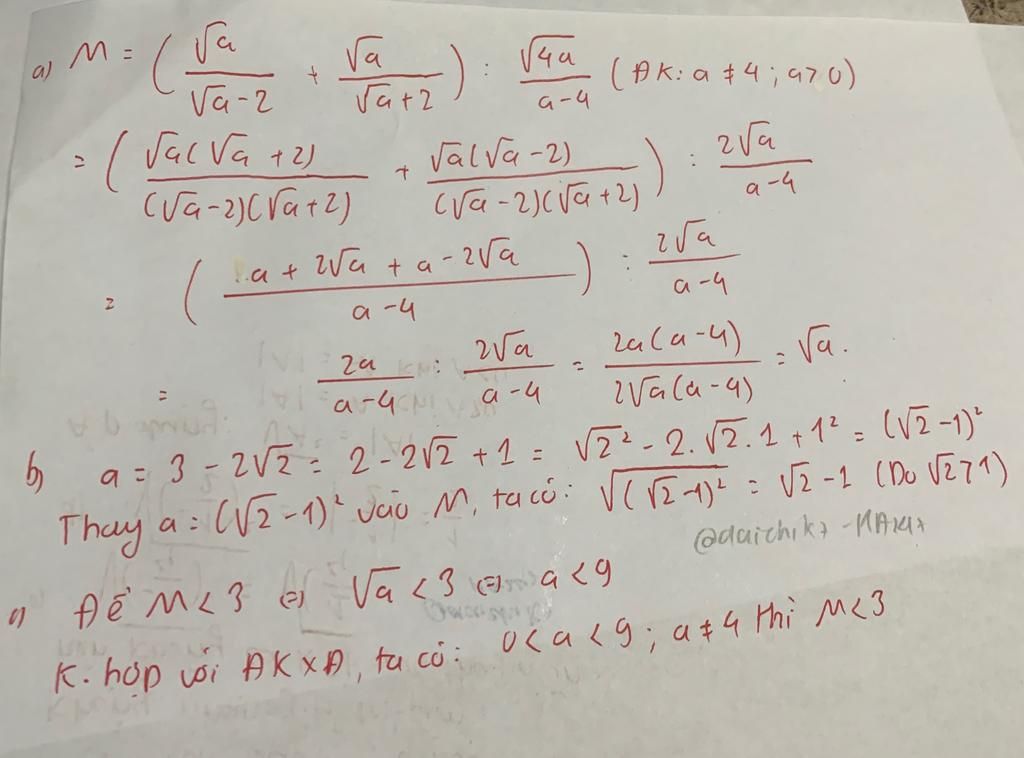 a) M = ( √a / (√a - 2) + √a / (√a + 2) ) : √4a / (a - 4) (ĐK: a ≠ 4 ; a > 0)
= ( √a(√a + 2) / (√a - 2)(√a + 2) + √a(√a - 2) / (√a - 2)(√a + 2) ) : 2√a / (a - 4)
= ( (a + 2√a + a - 2√a) / (a - 4) ) : 2√a / (a - 4)
= 2a / (a - 4) : 2√a / (a - 4) = 2a(a - 4) / 2√a(a - 4) = √a.
b) a = 3 - 2√2 = 2 - 2√2 + 1 = √2² - 2.√2.1 + 1² = (√2 - 1)²
Thay a = (√2 - 1)² vào M, ta có: √(√2 - 1)² = √2 - 1 (Do √2 > 1)
Để M < 3 ⇔ √a < 3 ⇔ a < 9
K. hợp với ĐKXĐ, ta có: 0 < a < 9 ; a ≠ 4 thì M < 3